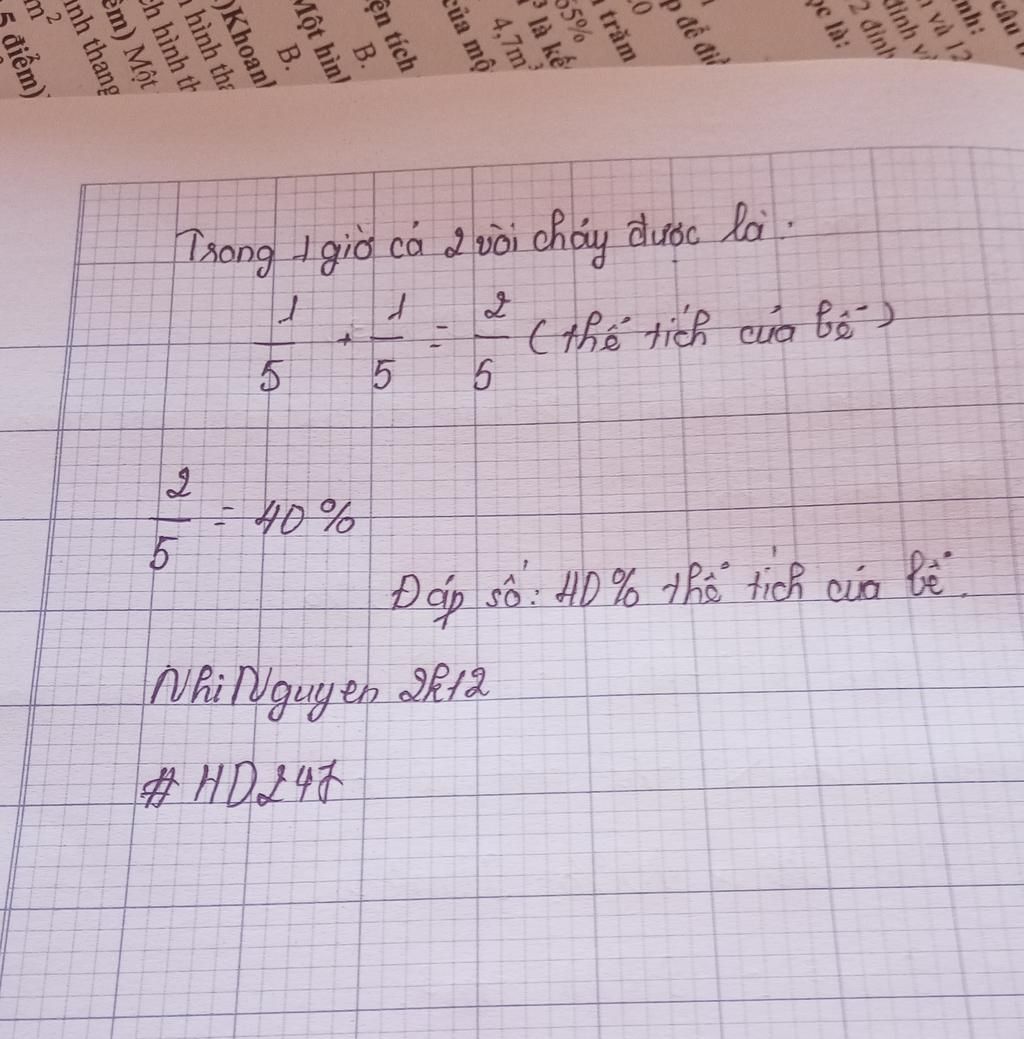 5 điểm)
m²
ình thang
ểm) Một
ch hình th
hình tha
)Khoanh
B.
Một hìn
B.
ện tích
của mộ
4,7m³
³ là kế
65%
trăm
p để đi
ọc là:
2 đỉnh
đỉnh v
và 12
ình:
câu
Trong 1 giờ cả 2 vòi chảy được là:
1/5 + 1/5 = 2/5 (thể tích của bể)
2/5 = 40%
Đáp số: 40% thể tích của bể.
NhiNguyen 2k12
#HD247